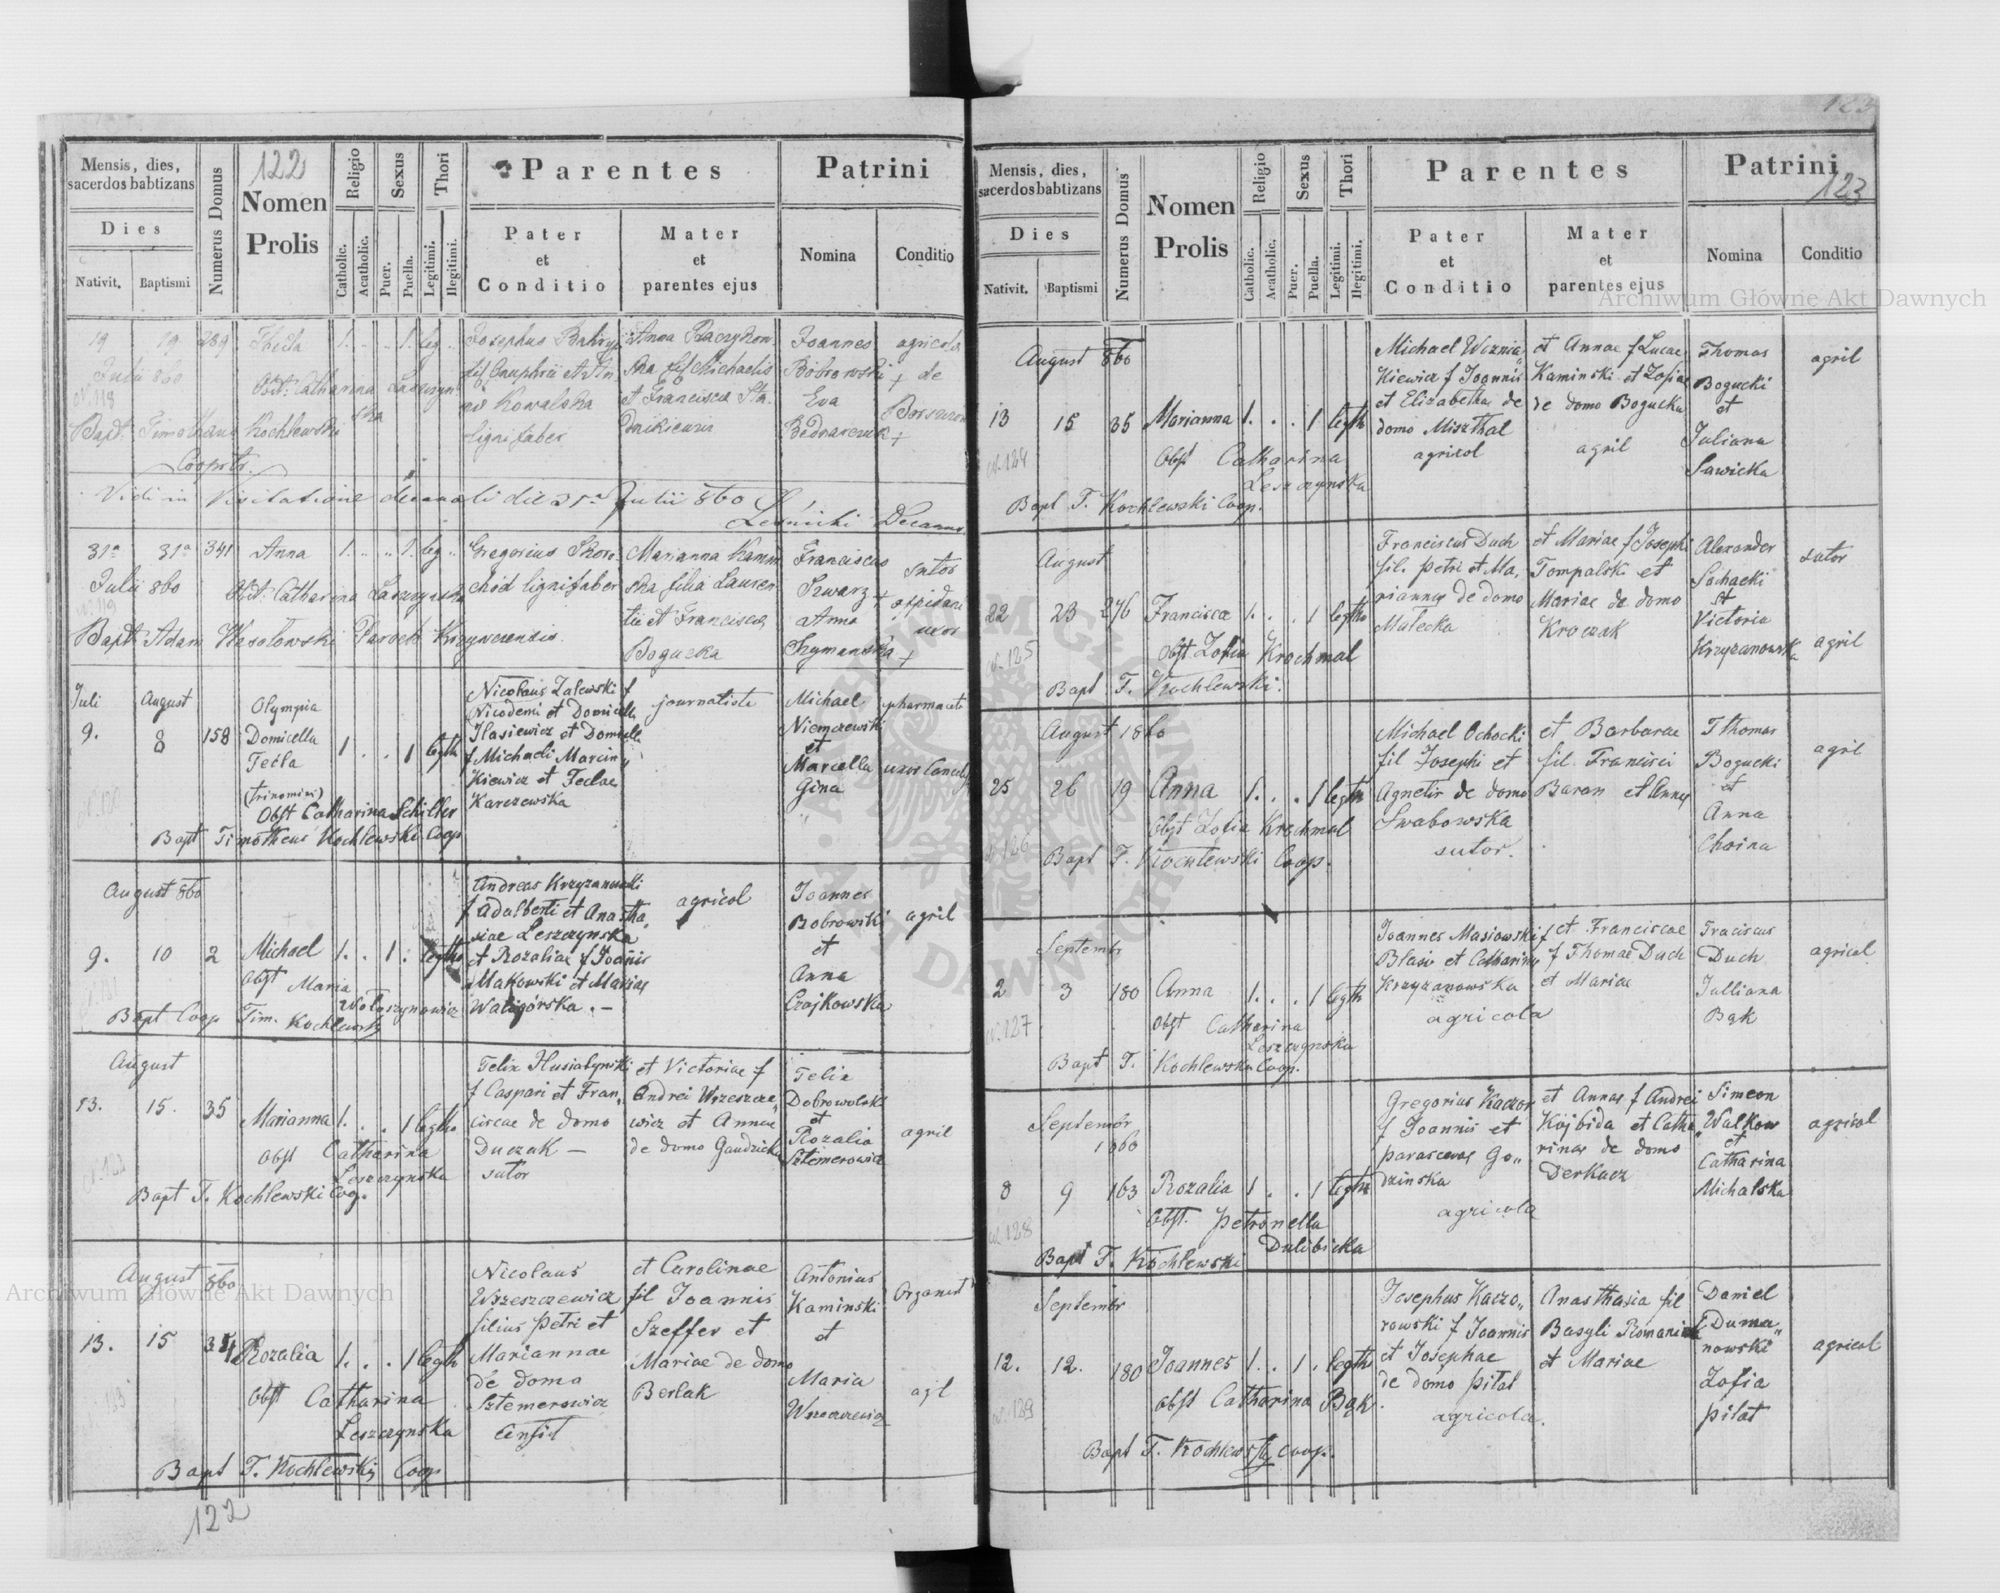 122
Mensis, dies,
sacerdos babtizans
Dies
Nativit.
Baptismi
Numerus Domus
Nomen
Prolis
Religio
Catholic.
Acatholic.
Sexus
Puer.
Puella.
Thori
Legitimi.
Illegitimi.
Parentes
Pater
et
Conditio
Mater
et
parentes ejus
Patrini
Nomina
Conditio
19 19 289 Thecla 1. 1. leg
Julii 860
Obst: Catharina
Bapt: Timotheus Kochlewski
Cooptr.
Josephus
fil Onuphrii et
Kowalska
ligni faber
Anna
ska fil Michaelis
et Francisca
Joannes
Bobrowski
+
Eva
Bednarczuk
+
agricola
de
Vidi in Visitatione decanali die 25ta Julii 860
Decanus
31a 31a 341 Anna 1. 1. leg
Julii 860
Obst: Catharina Laszczynska
Bapt: Adam Wasolowski Paroch
Gregorius
lignifaber
Marianna Kamin
ska filia Lauren
tii et Francisca
Boguzka
Franciscus
Szwarz +
Anna
Szymanska
+
sutor
oppidani
uxor
Juli August
9. 8 158
Olympia
Domicella
Tecla
(trinomini)
1 . . 1 legth
Obst Catharina Schiller
Bapt Timotheus Kochlewski Coop
Nicolaus Zalewski f
Nicodemi et Domicella
Ilasiewicz et Domicella
f Michaeli Marcin,,
kiewicz et Teclae
Karczewska
journaliste
Michael
Niemczewski
et
Marcella
Gina
pharmaceta
uxor
August 860
9. 10 2 Michael 1. . 1 . legth
Obst Maria
Wołoszynowicz
Bapt Coop Tim. Kochlewski
Andreas Krzyzanowski
f Adalberti et Anastha,
siae Leszczynska
et Rozaliae f Joannis
Makowski et Marias
Waligórska . –
agricol
Joannes
Bobrowski
et
Anna
Czajkowska
agril
August
13. 15. 35 Marianna 1. . . 1 legth
Obst Catharina
Leszczynska
Bapt T. Kochlewski Coop.
Felix Husiatynski
f Caspari et Fran,,
ciscae de domo
Duczak –
sutor
et Victoriae f
Andrei Wrzeszcze,,
wicz et Annae
de domo Gaudzicka
Felix
Dobrowolski
et
Rozalia
Sztemerowicz
agril
August 860
13. 15 354 Rozalia 1. . . 1 legth
Obst Catharina
Leszczynska
Bapt T. Kochlewski Coop
Nicolaus
Wrzeszczewicz
filius Petri et
Mariannae
de domo
Sztemerowicz
et Carolinae
fil Joannis
Szeffer et
Mariae de domo
Berlak
Antonius
Kaminski
et
Maria
Wrzeszczewicz
Organist
agl
122
123
123
Mensis, dies,
sacerdos babtizans
Dies
Nativit.
Baptismi
Numerus Domus
Nomen
Prolis
Religio
Catholic.
Acatholic.
Sexus
Puer.
Puella.
Thori
Legitimi.
Illegitimi.
Parentes
Pater
et
Conditio
Mater
et
parentes ejus
Patrini
Nomina
Conditio
August 860
13 15 35 Marianna 1. . . 1 legth
Obst Catharina
Leszczynska
Bapt T. Kochlewski Coop.
Michael Woznia,,
kiewicz f Joannis
et Elizabetha de
domo Miszthal
agricol
et Annae f Lucae
Kaminski et Zofiae
de domo Bogucka
agril
Thomas
Bogucki
et
Juliana
Sawicka
agril
August
22 23 276 Francisca 1. . . 1 legth
Obst Zofia Krochmal
Bapt T. Kochlewski.
Franciscus Duch
fil. Petri et Ma,
riannae de domo
Matecka
et Mariae f Josephi
Tompalski et
Mariae de domo
Kroczak
Alexander
Sochacki
et
Victoria
Krzyzanowska
sutor
agril
August 1860
25 26 19 Anna 1. . . 1 legth
Obst Zofia Krochmal
Bapt T. Kochlewski Coop.
Michael Ochocki
fil Josephi et
Agnetis de domo
Swabowska
sutor.
et Barbarae
fil. Francisci
Baran et Annae
Thomas
Bogucki
et
Anna
Choina
agril
Septembr
2 3 180 Anna 1. . . 1 legth
Obst Catharina
Leszczynska
Bapt T. Kochlewski Coop.
Joannes Masiowski f
Blasi et Catharinae
Krzyzanowska
agricola
et Franciscae
f Thomae Duch
et Mariae
Franciscus
Duch
Julliana
Bąk
agricol
Septembr
1860
8 9 163 Rozalia 1 . . 1 legth
Obst. Petronella
Dulibicka
Bapt T. Kochlewski
Gregorius Kaczor
f Joannis et
Parascevae Go,,
dzinska
agricola
et Annae f Andrei
Kojbida et Catha,,
rinae de domo
Derkacz
Simeon
Walkow
et
Catharina
Michalska
agricol
Septembr
12. 12. 180 Joannes 1. . 1 . legth
Obst Catharina Bąk
Bapt T. Kochlewski Coop.
Josephus Kaczo,,
rowski f Joannis
et Josephae
de domo Pilat
agricola.
Anasthasia fil
Basyli
et Mariae
Daniel
Duma,,
nowski
Zofia
Pilat
agricol
Archiwum Główne Akt Dawnych
Archiwum Główne Akt Dawnych